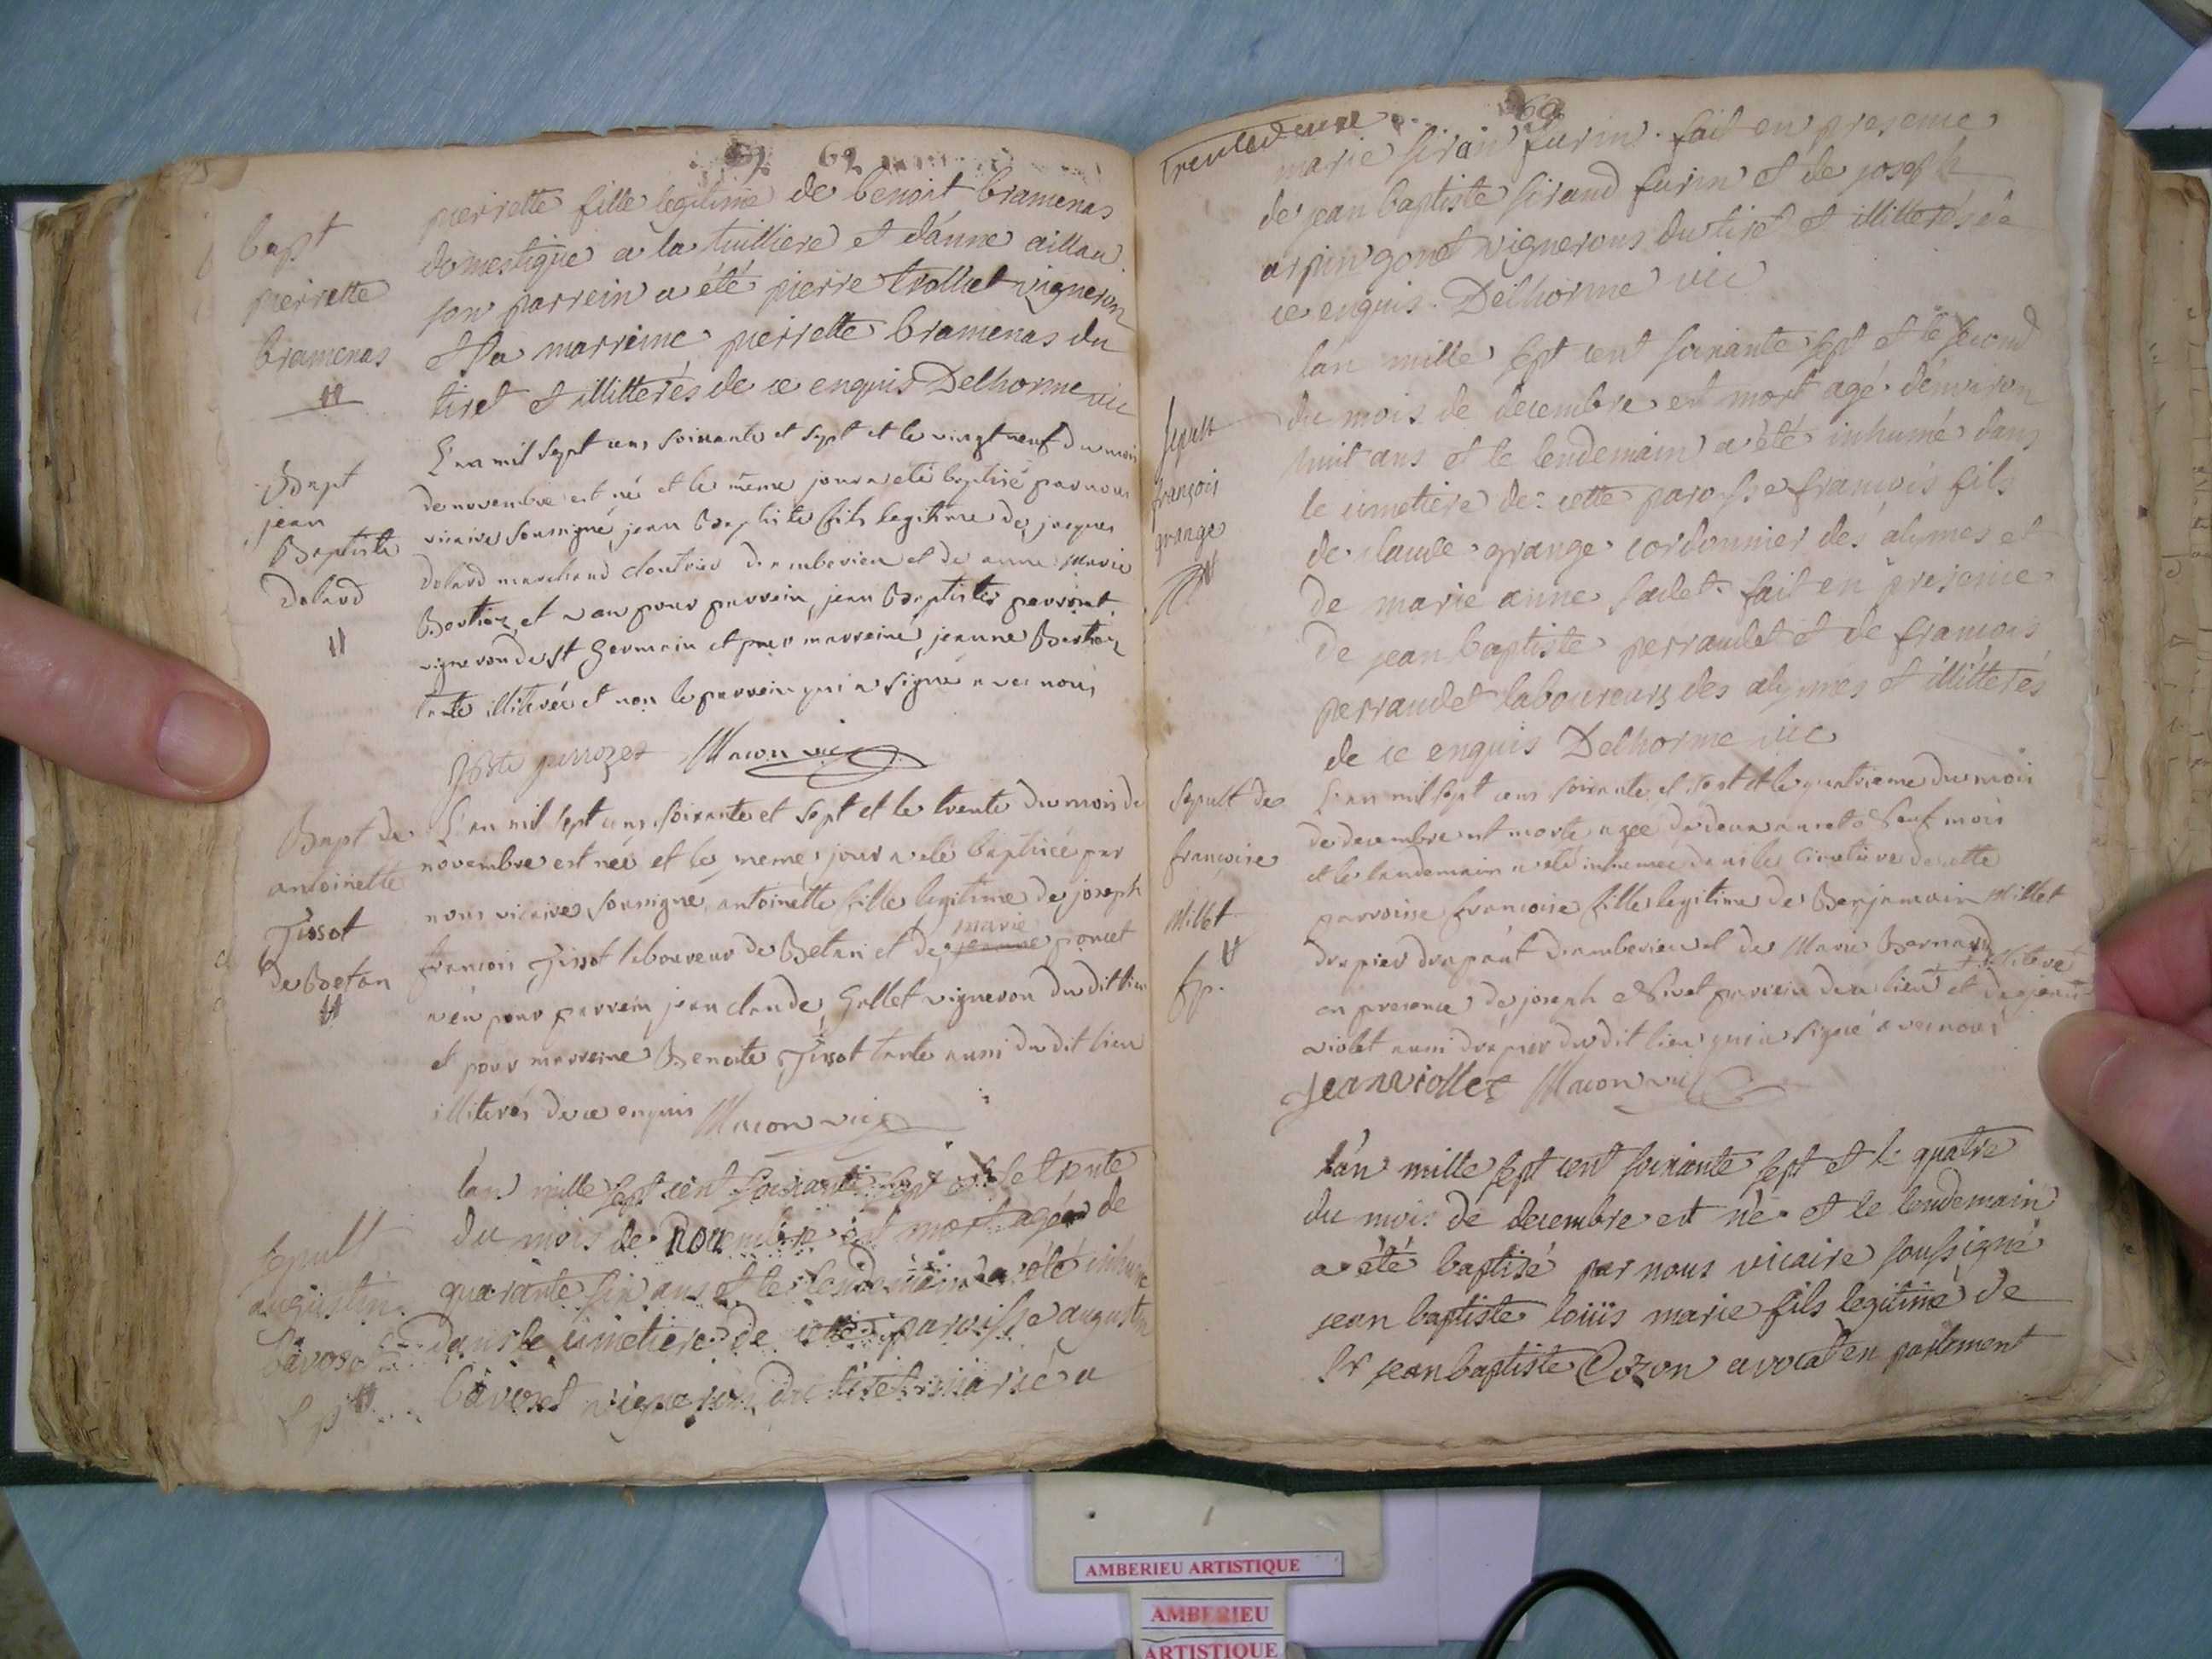 62
bapt
pierrette
bramenas
pierrette fille legitime de benoit bramenas
domestique a la tuilliere et d'anne aillau
son parrein a été pierre trolliet vigneron
et sa marreine pierrette bramenas du
tiret et illitterés de ce enquis Delhorme vic
Bapt
jean
Baptiste
Dolard
L'an mil sept cens soixante et sept et le vingt neuf du mois
de novembre est né et le même jour a eté baptisé par nous
vicaire soussigné jean Baptiste fils legitime de jacques
dolard marchand cloutier d'amberieu et de anne Marie
Bertion et a eu pour parrein jean Baptiste perrozet
vigneron de st Germain et pour marreine jeanne Bertion
tante illiterée et non le parrein qui a signé avec nous
JBte perrozet Macon vic
Bapt de
antoinette
Tissot
de Betan
L'an mil sept cens soixante et sept et le trente du mois de
novembre est neé et le meme jour a eté baptisée par
nous vicaire soussigné antoinette fille legitime de joseph
marie
francois Tissot laboureur de Betan et de jeanne poncet
a eu pour parrein jean claude Gollet vigneron du dit lieu
et pour marreine Benoite Tissot tante aussi du dit lieu
illiterés de ce enquis Macon vic
Sepult
augustin
bavoset
lan mille sept cent soixante sept et le trente
du mois de novembre est mort agé de
quarante six ans et le lendemain a été inhumé
dans le cimetiere de cette paroisse augustin
bavoset vigneron du tiret marié a
trentedeuxe
marie siran furin fait en presence
de jean baptiste sirand furin et de joseph
arpin gonet vignerons du tiret et illitterés de
ce enquis. Delhorme vic
Sepult
françois
grange
lan mille sept cent soixante sept et le second
du mois de decembre est mort agé d'environ
huit ans et le lendemain a été inhumé dans
le cimetiere de cette paroisse francois fils
de claude grange cordonnier des alymes et
de marie anne sadet fait en presence
de jean baptiste perraudet et de francois
perraudet laboureurs des alymes et illitterés
de ce enquis Delhorme vic
Sepult de
françoise
Millet
L'an mil sept cens soixante et sept et le quatrieme du mois
de decembre est morte agée de deux ans et neuf mois
et le landemain a eté inhumée dans le cimetiere de cette
parroisse francoise fille legitime de Benjamin Millet
drapier drapant d'amberieu et de Marie Bernard
illiteré
en presence de joseph parrein du lieu et de jean
violet aussi drapier du dit lieu qui a signé avec nous
Jean viollet Macon vic
lan mille sept cent soixante sept et le quatre
du mois de decembre est né et le lendemain
a été baptisé par nous vicaire soussigné
jean baptiste loüis marie fils legitime de
Sr jean baptiste Cozon avocat en parlement
AMBERIEU ARTISTIQUE
AMBERIEU
ARTISTIQUE